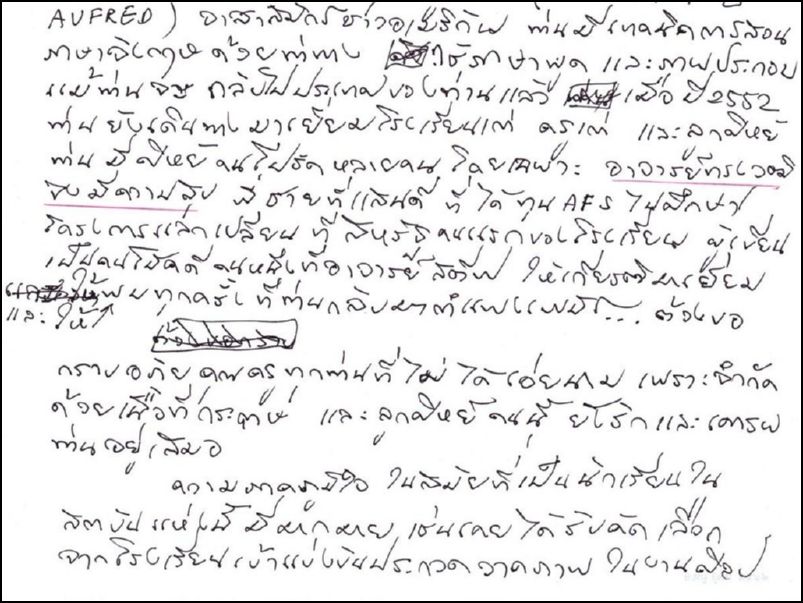 AVFRED) อาสาสมัครชาวอเมริกัน ท่านมีเทคนิคการสอน
ภาษาอังกฤษ ด้วยท่าทาง ใช้ภาษาพูด และภาพประกอบ
แม้ท่านจะ กลับไปประเทศของท่านแล้ว เมื่อ ปี 2552
ท่านยังเดินทางมาเยี่ยมโรงเรียนเก่า ครูเก่า และลูกศิษย์
ท่านมีศิษย์คนโปรดหลายคน โดยเฉพาะ อาจารย์ทรงวุฒิ
จึงมีความสุข พี่ชายที่แสนดี ที่ได้ทุน AFS ไปศึกษา
โครงการแลกเปลี่ยน ที่สหรัฐคนแรกของโรงเรียน ผู้เขียน
เป็นคนโชคดีคนหนึ่งที่อาจารย์สตีฟ ให้เกียรติมาเยี่ยม
ให้พบทุกครั้งที่ท่านกลับมากำแพงเพชร... ต้องขอ
และให้
กราบอภัยคุณครูทุกท่านที่ไม่ได้เอ่ยนาม เพราะจำกัด
ด้วยเนื้อที่กระดาษ และลูกศิษย์คนนี้ ยังรักและเคารพ
ท่านอยู่เสมอ
ความภาคภูมิใจ ในสมัยที่เป็นนักเรียนใน
สถาบันแห่งนี้มีมากมาย เช่นเคยได้รับคัดเลือก
จากโรงเรียนเข้าแข่งขันประกวดวาดภาพ ในงานศิลป